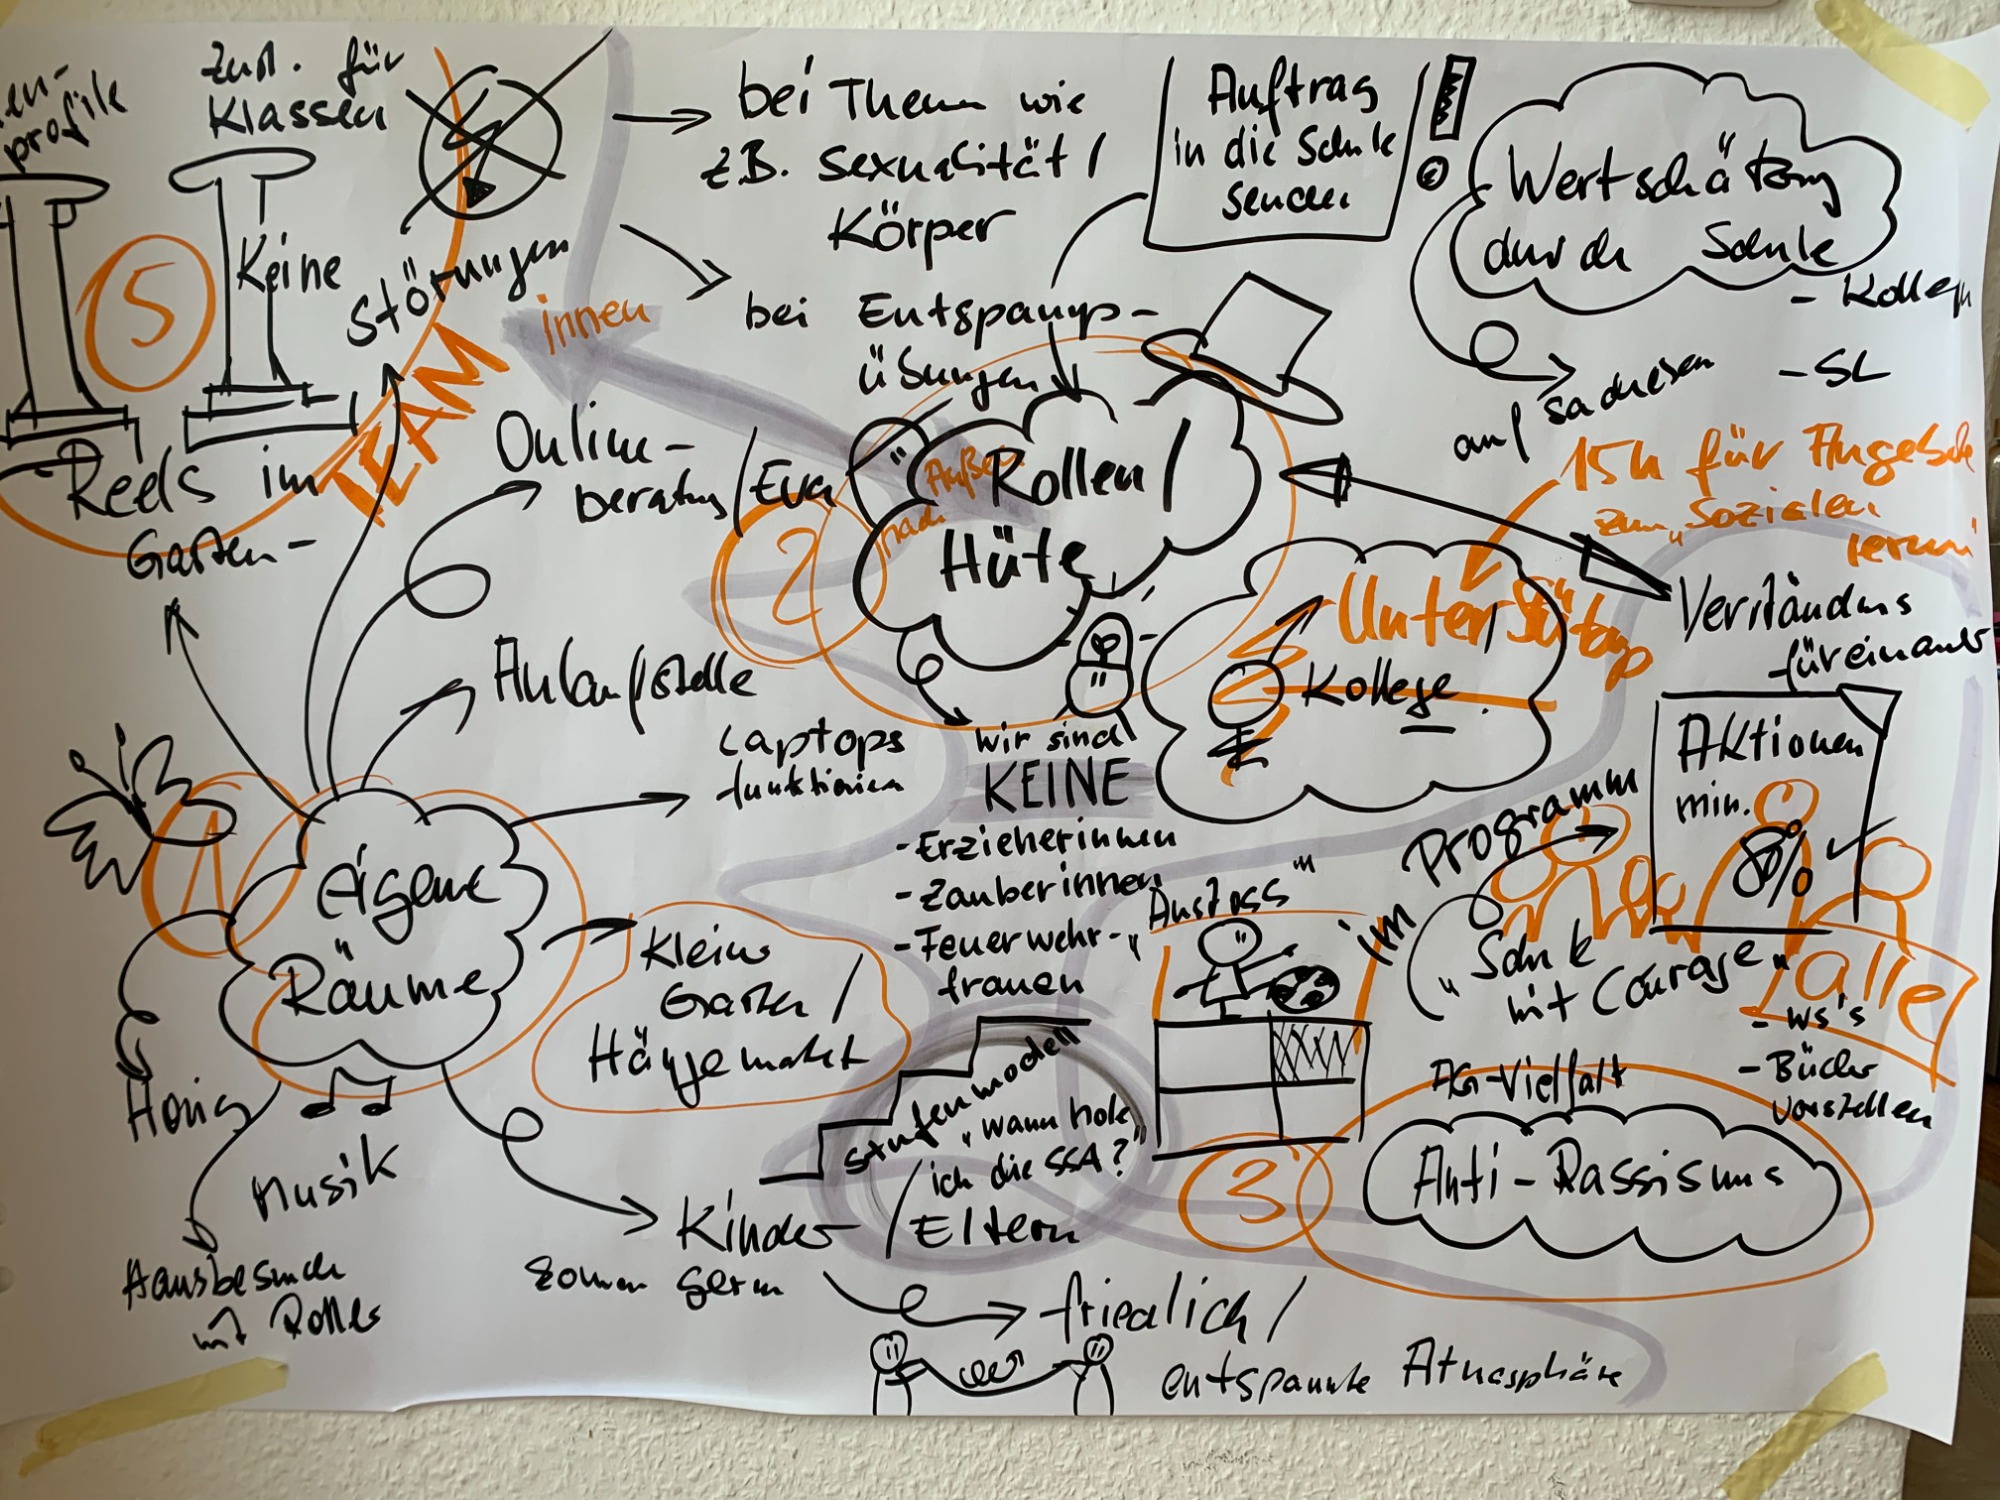 profile
Zust. für
Klassen
5
Keine
Störungen
TEAM
innen
Reels im
Garten-
bei Themen wie
z.B. Sexualität /
Körper
bei Entspanngs-
übungen
Auftrag
in die Schule
senden
Wertschätzung
durch Schule
- Kollegn
- SL
auf
15h für Angebote
zum "Sozialen
lernen"
Online-
beratung / Eva
2
Außen
nach
Rollen /
Hüte
Unterstützung
Kollege
Verständnis
füreinander
Anlaufstelle
Laptops
funktionieren
wir sind
KEINE
- Erzieherinnen
- Zauberinnen
- Feuerwehr-
frauen
"Anstoss"
im Programm
"Schule
mit Courage"
Aktionen
min.
80%
alle
- WS's
- Bücher
vorstellen
1
eigene
Räume
Kleine
Garten /
Hängematte
Honig
Musik
Hausbesuche
mit Roller
Stufenmodell
"wann hole
ich die SSA?"
Kinder / Eltern
kommen gern
friedlich /
entspannte Atmosphäre
3
AG-Vielfalt
Anti-Rassismus